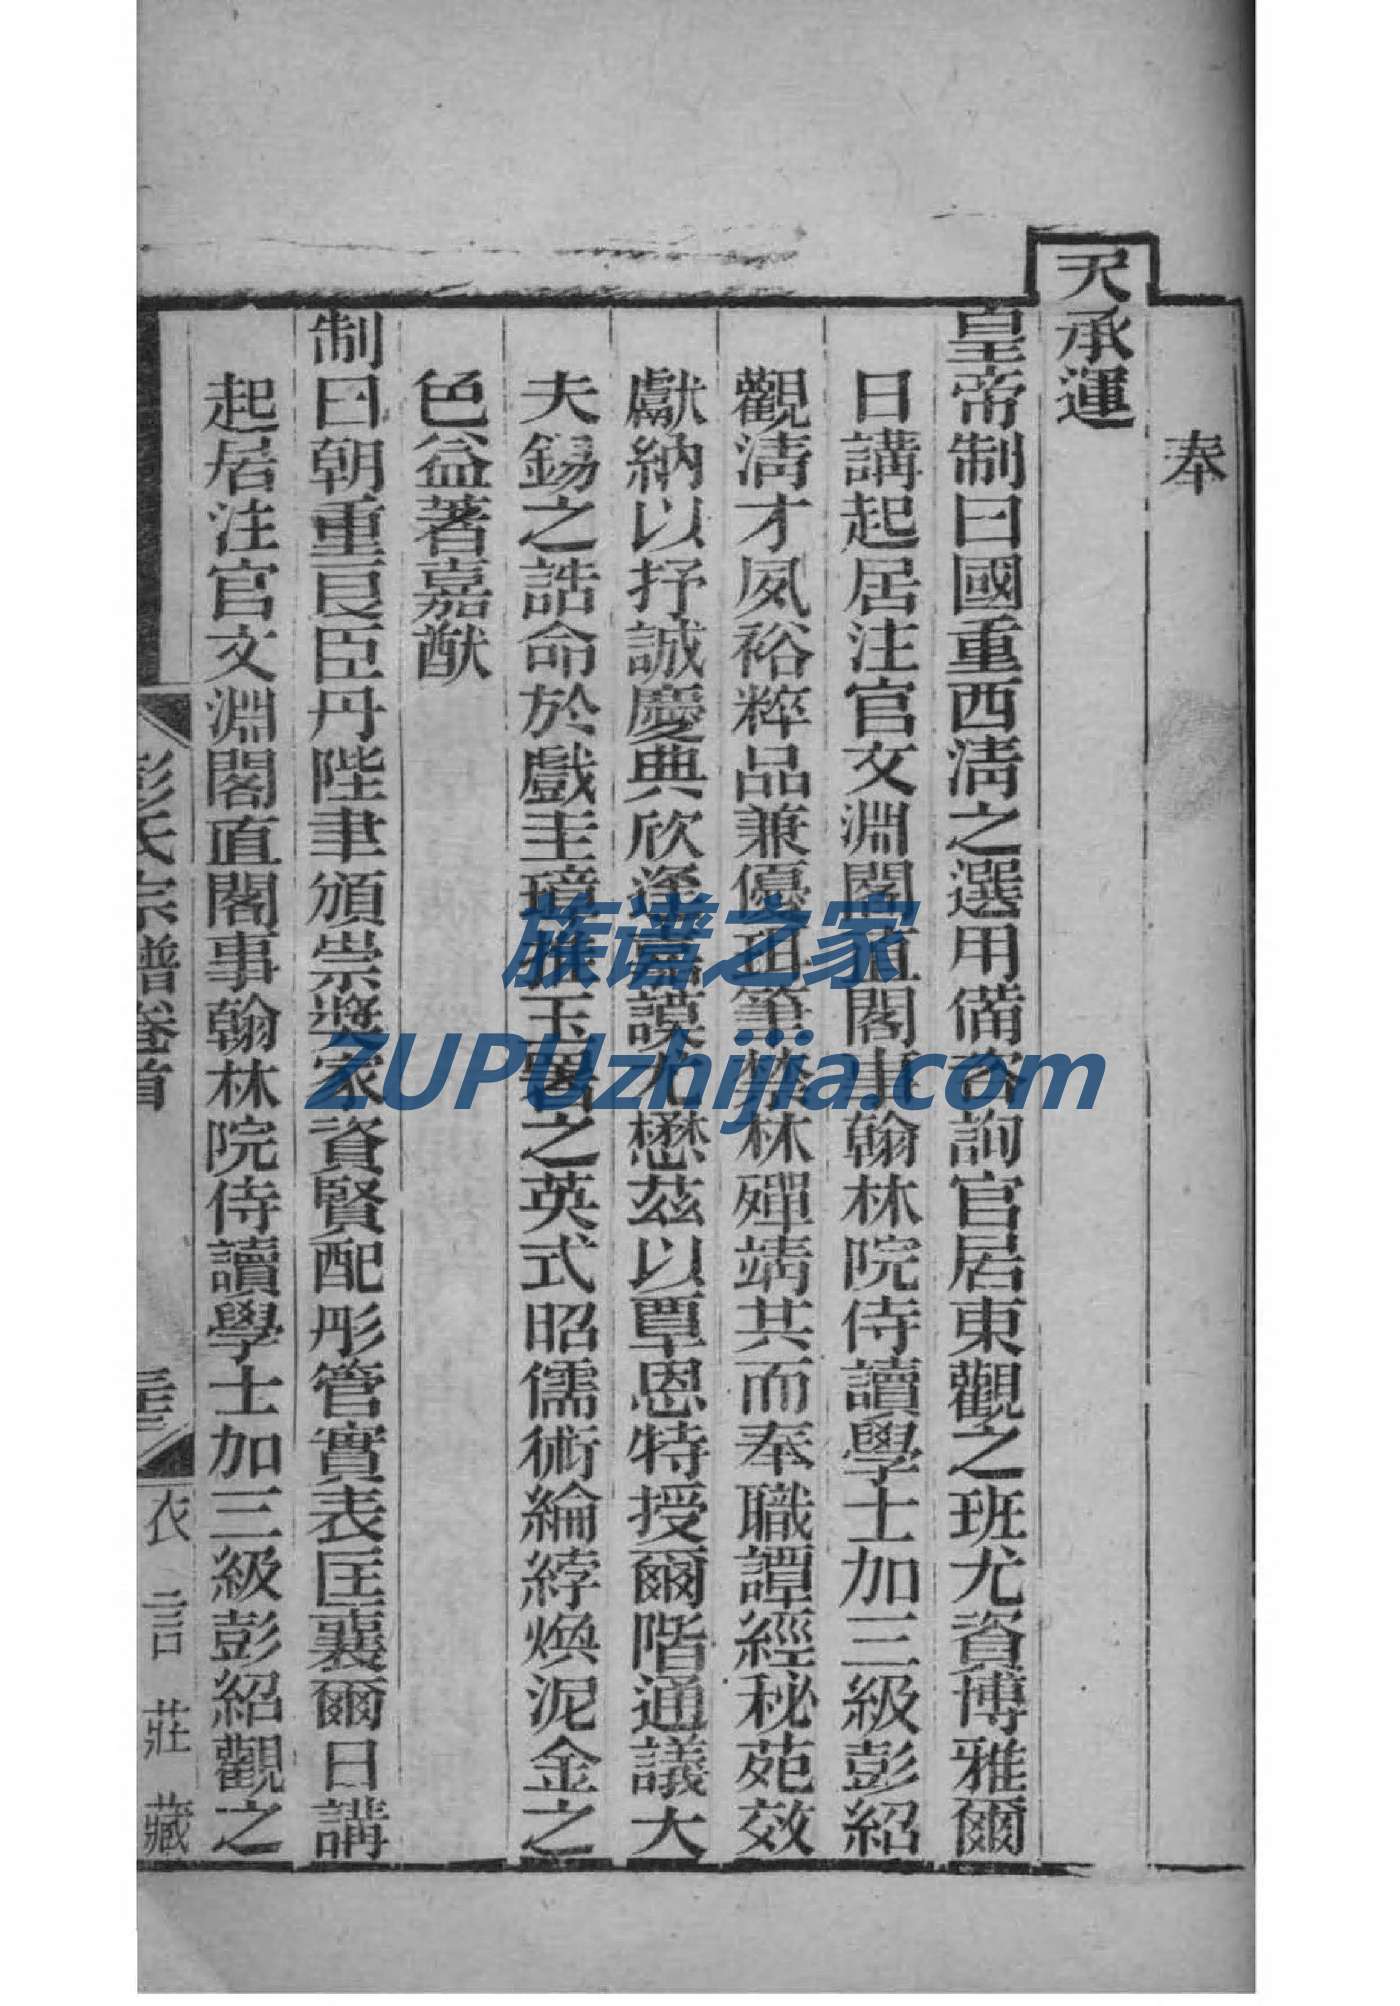 奉
天承運
皇帝制曰國重西清之選用備咨詢官居東觀之班尤資博雅爾
日講起居注官文淵閣直閣事翰林院侍讀學士加三級彭紹
觀清才夙裕粹品兼優珥筆禁林殫靖共而奉職譚經秘苑效
獻納以抒誠慶典欣逢嘉謨尤懋茲以覃恩特授爾階通議大
夫錫之誥命於戲圭璋推玉署之英式昭儒術綸綍煥泥金之
色益著嘉猷
制曰朝重良臣丹陛聿頒崇獎家資賢配彤管實表匡襄爾日講
起居注官文淵閣直閣事翰林院侍讀學士加三級彭紹觀之
彭氏宗譜卷首
衣言莊藏
族谱之家
ZUPUzhijia.com